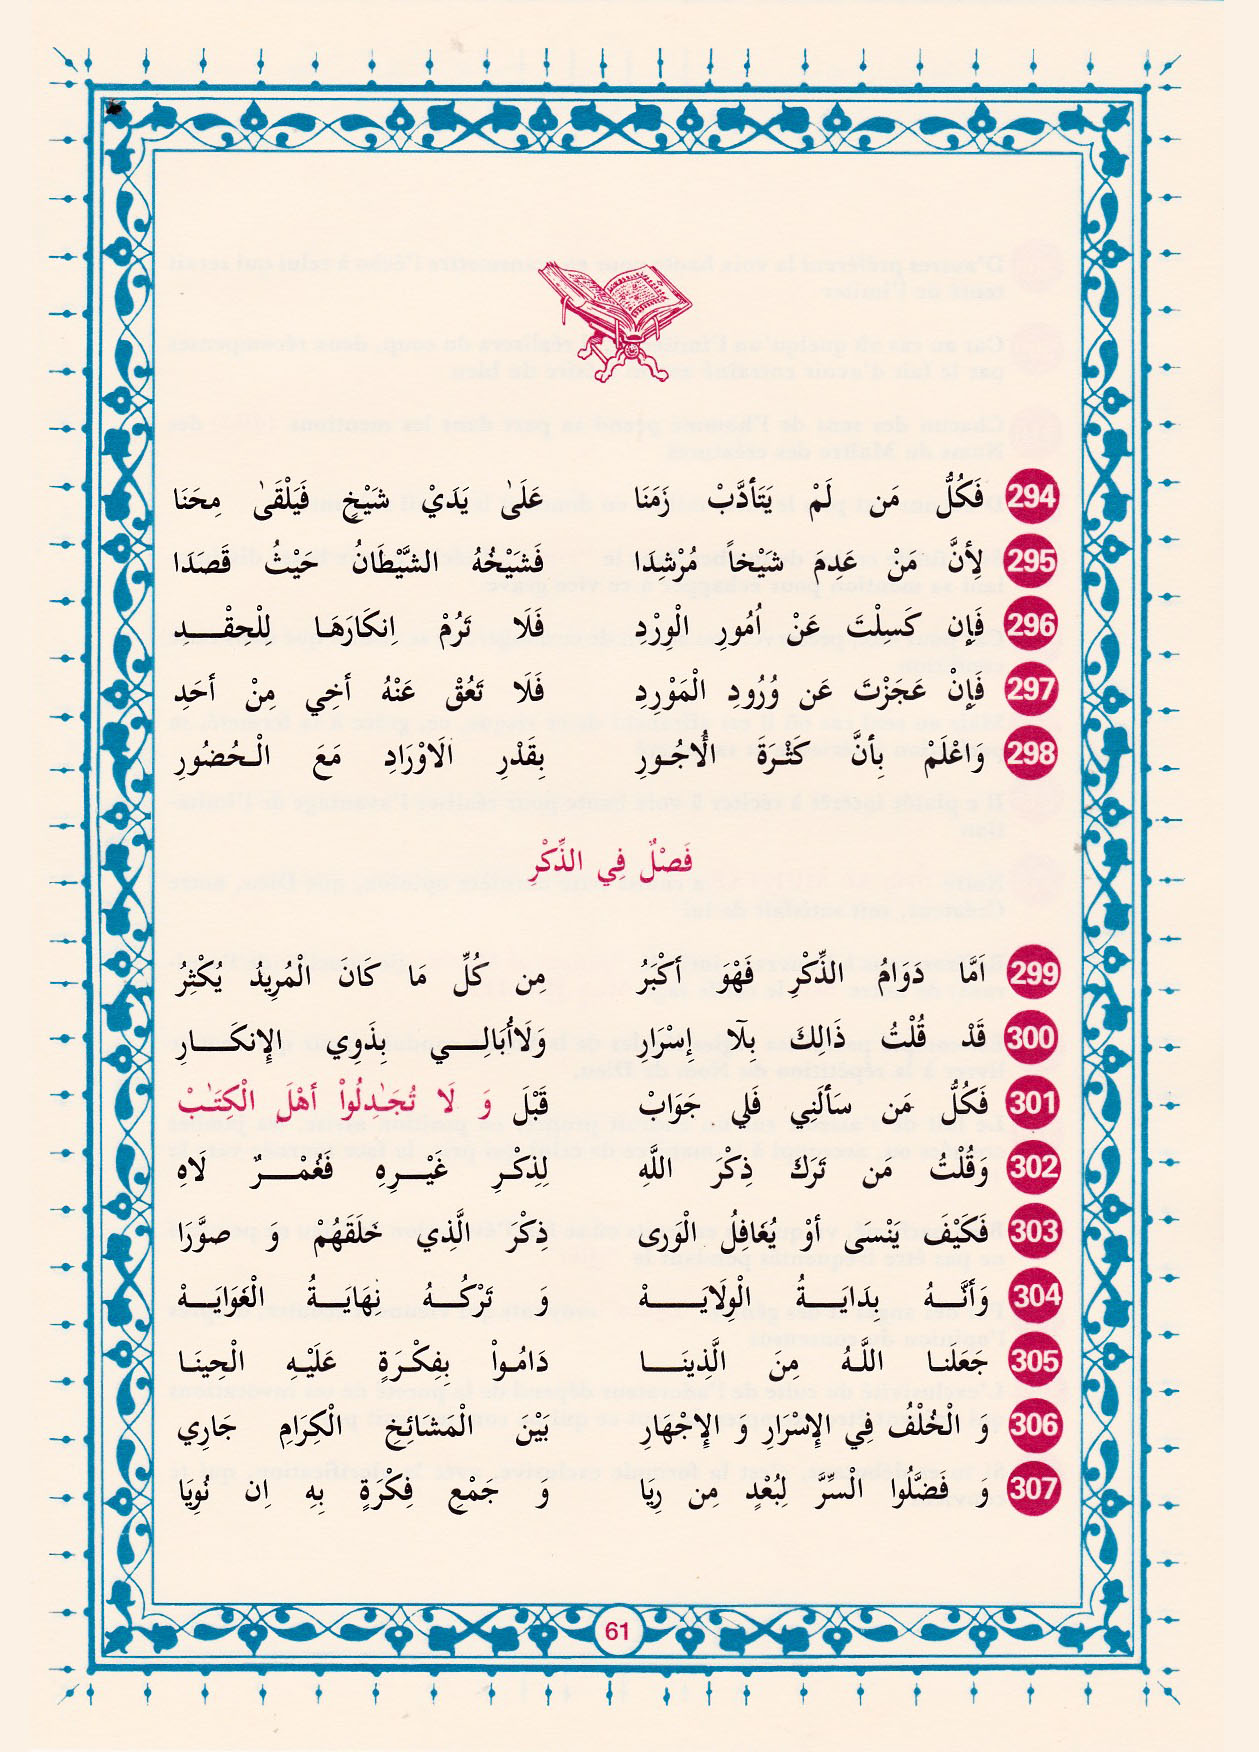 294 فَكُلُّ مَن لَمْ يَتَأَدَّبْ زَمَنَا عَلَىٰ يَدَيْ شَيْخٍ فَيَلْقَىٰ مِحَنَا
295 لِأَنَّ مَنْ عَدمَ شَيْخاً مُرْشِدَا فَشَيْخُهُ الشَّيْطَانُ حَيْثُ قَصَدَا
296 فَإِن كَسِلْتَ عَنْ أُمُورِ الْوِرْدِ فَلَا تَرُمْ اِنكَارَهَا لِلْحِقْدِ
297 فَإِنْ عَجَزْتَ عَن وُرُودِ الْمَوْرِدِ فَلَا تَعُقْ عَنْهُ أَخِي مِنْ أَحَدِ
298 وَاعْلَمْ بِأَنَّ كَثْرَةَ الْأُجُورِ بِقَدْرِ الَاوْرَادِ مَعَ الْحُضُورِ
فَصْلٌ فِي الذِّكْرِ
299 اَمَّا دَوَامُ الذِّكْرِ فَهْوَ أَكْبَرُ مِن كُلِّ مَا كَانَ الْمُرِيدُ يُكْثِرُ
300 قَدْ قُلْتُ ذَالِكَ بِلَا إِسْرَارِ وَلَاأُبَالِي بِذَوِي الإِنكَارِ
301 فَكُلُّ مَن سَأَلَنِي فَلِي جَوَابْ قَبْلَ وَ لَا تُجَٰدِلُواْ أَهْلَ الْكِتَٰبْ
302 وَقُلْتُ مَن تَرَكَ ذِكْرَ اللَّهِ لِذِكْرِ غَيْرِهِ فَغُمْرٌ لَاهِ
303 فَكَيْفَ يَنْسَى أَوْ يُغَافِلُ الْوَرَى ذِكْرَ الَّذِي خَلَقَهُمْ وَ صوَّرَا
304 وَأَنَّهُ بِدَايَةُ الْوِلَايَهْ وَ تَرْكُهُ نِهَايَةُ الْغَوَايَهْ
305 جَعَلَنَا اللَّهُ مِنَ الَّذِينَا دَامُواْ بِفِكْرَةٍ عَلَيْهِ الْحِينَا
306 وَ الْخُلْفُ فِي الإِسْرَارِ وَ الإِجْهَارِ بَيْنَ الْمَشَائِخِ الْكِرَامِ جَارِي
307 و فَضَّلُوا السِّرَّ لِبُعْدٍ مِن رِيَا و جَمْعِ فِكْرَةٍ بِهِ اِن نُوِيَا
61